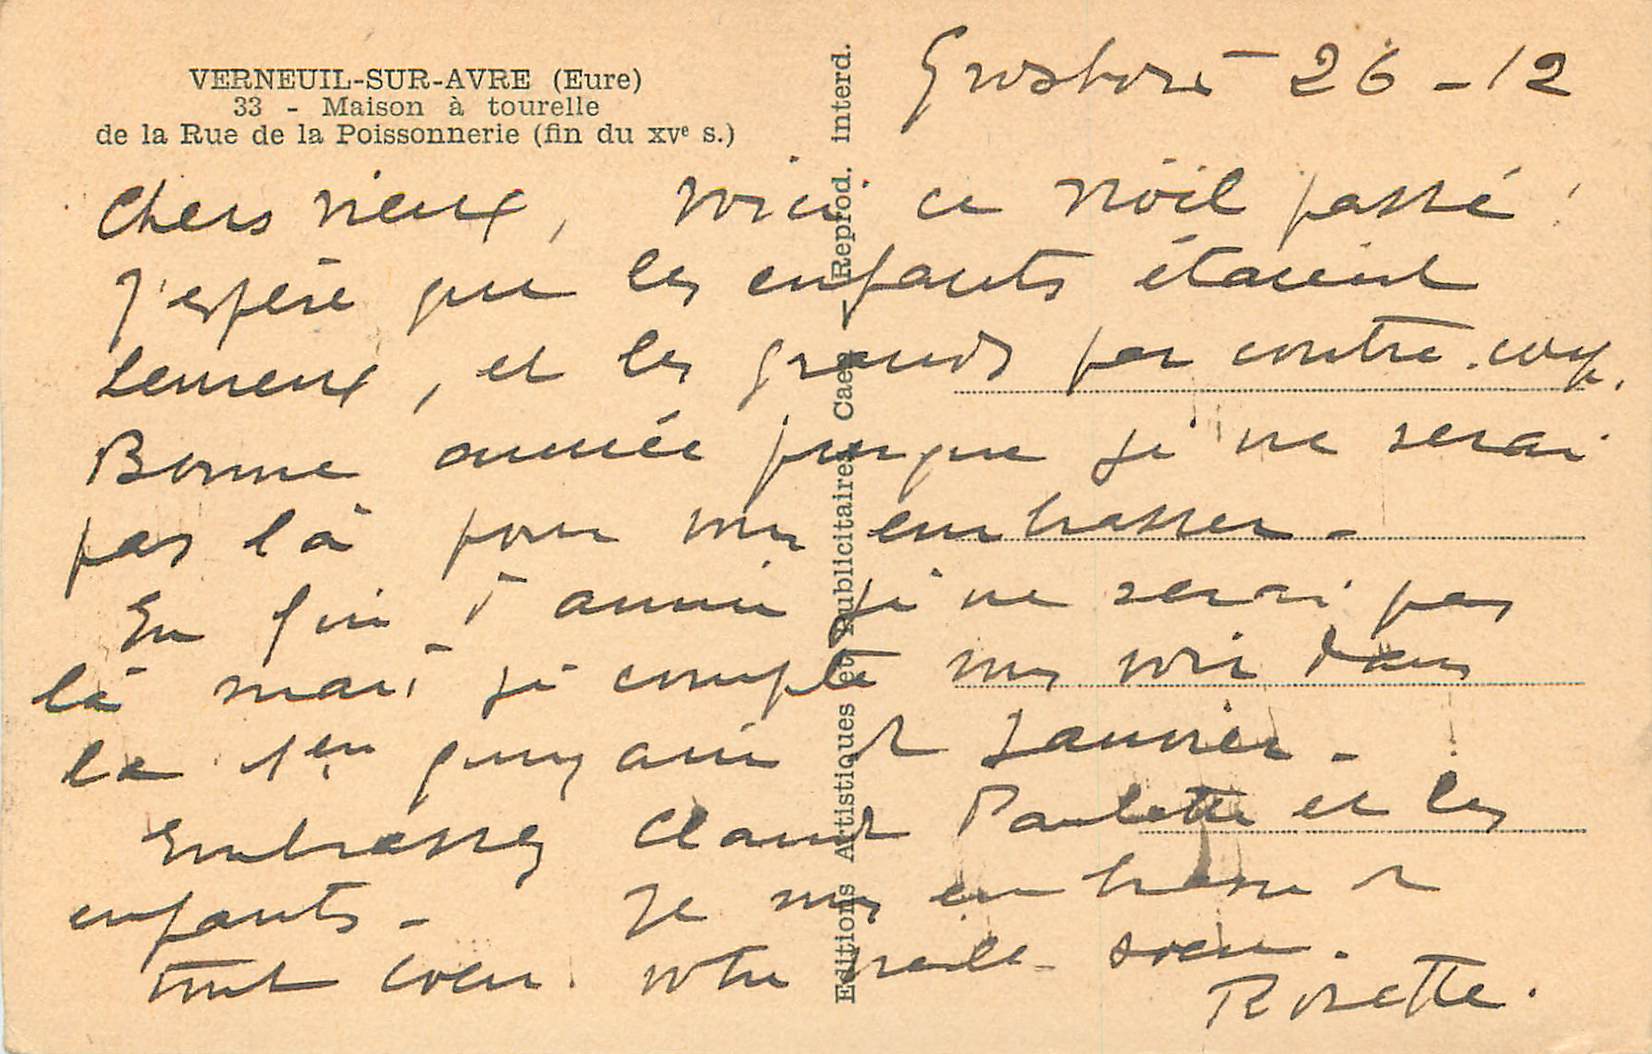 VERNEUIL-SUR-AVRE (Eure)
33 - Maison à tourelle
de la Rue de la Poissonnerie (fin du XVe s.)
Editions Artistiques et Publicitaires Caen - Reprod. interd.
26-12
Chers vieux, voici ce Nöel passé !
J'espère que les enfants étaient
heureux, et les grands par contre-coup.
Bonne année puisque je ne serai
pas là pour vous embrasser -
En fin d'année je ne serai pas
là mais je compte vous voir dans
la 1ère quinzaine de Janvier -
Embrassez Claude Paulette et les
enfants - Je vous embrasse de
tout coeur. votre vieille soeur.
Rosette.